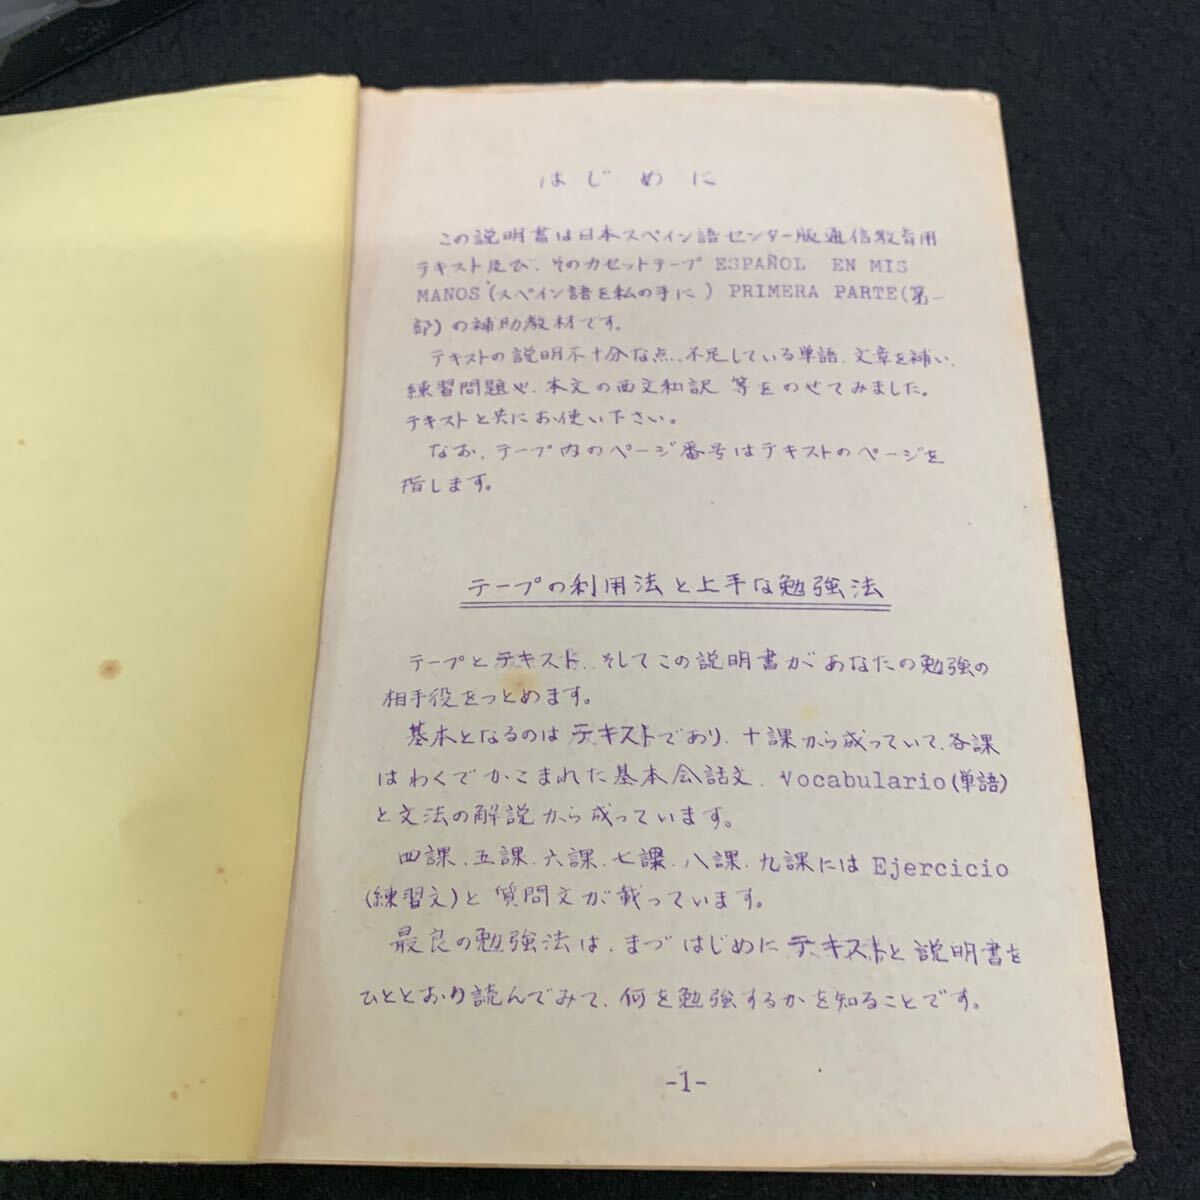 はじめに
この説明書は日本スペイン語センター版通信教育用
テキスト及び、そのカセットテープ ESPAÑOL EN MIS
MANOS (スペイン語を私の手に) PRIMERA PARTE(第一
部)の補助教材です。
テキストの説明不十分な点、不足している単語、文章を補い、
練習問題や、本文の西文和訳 等をのせてみました。
テキストと共にお使い下さい。
なお、テープ内のページ番号はテキストのページを
指します。
テープの利用法と上手な勉強法
テープとテキスト、そしてこの説明書があなたの勉強の
相手役をつとめます。
基本となるのはテキストであり、十課から成っていて、各課
はわくでかこまれた基本会話文、Vocabulario(単語)
と文法の解説から成っています。
四課、五課、六課、七課、八課、九課には Ejercicio
(練習文)と質問文が載っています。
最良の勉強法は、まづはじめにテキストと説明書を
ひととおり読んでみて、何を勉強するかを知ることです。
-1-